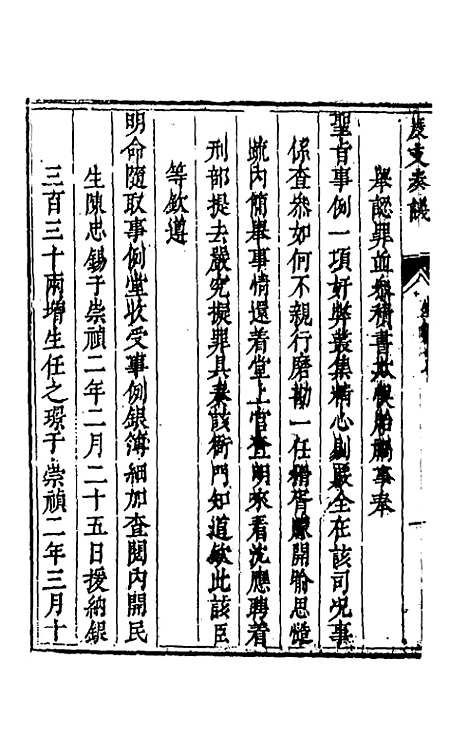 度支奏議
舉認罪並參積書
事奉
聖旨事例一項奸弊叢集精心剔嚴全在該司况事
保查參如何不親行磨勘一任猾胥朦開喻思慥
疏內簡舉事情還着堂上官查明來看沈應聘着
刑部提去嚴究擬罪具奏該衙門知道欽此該臣
等欽遵
明命隨取事例堂收受事例銀簿細加查閱內開民
生陳忠錫于崇禎二年二月二十五日援納銀
三百三十兩增生任之璟于崇禎二年三月十